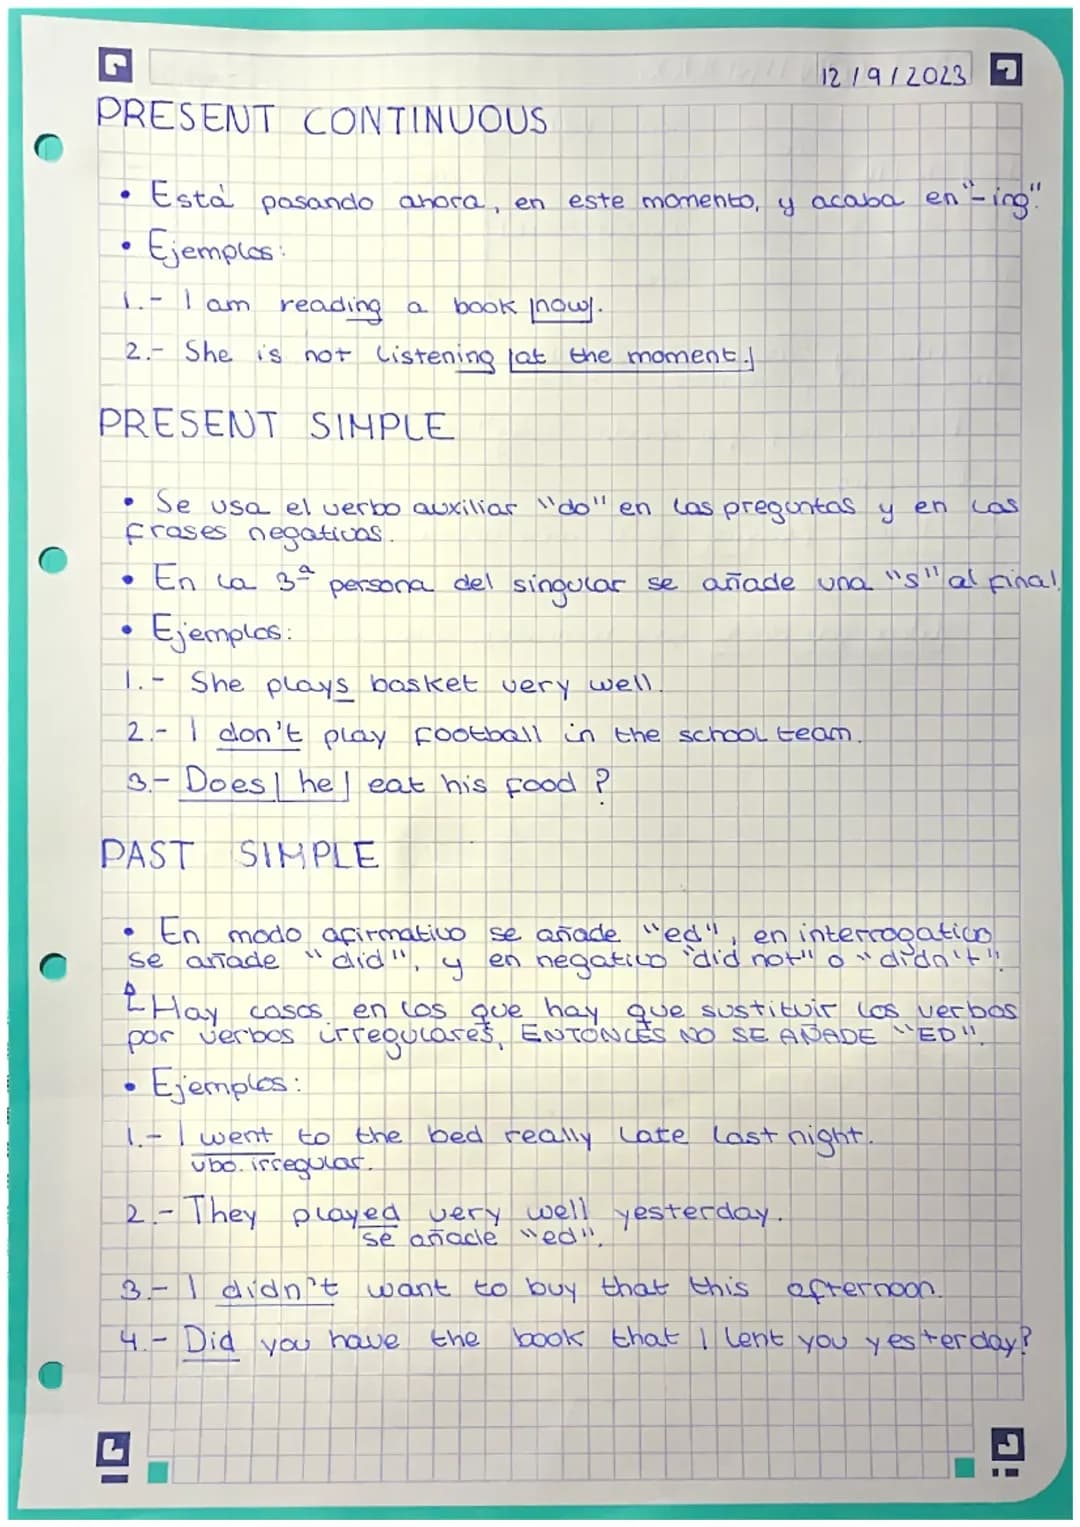 12/9/2023
PRESENT CONTINUOUS
• Está pasando ahora, en este momento, y acaba en "-ing".
• Ejemplos:
1.- I am reading a book now.
2.- She is not listening at the moment.
PRESENT SIMPLE
• Se usa el verbo auxiliar "do" en las preguntas y en las
frases negativas.
• En la 3ª persona del singular se añade una "s" al final.
• Ejemplos:
1.- She plays basket very well.
2.- I don't play football in the school team.
3.- Does he eat his food?
PAST SIMPLE
• En modo afirmativo se añade "ed", en interrogativo
se añade "did", y en negativo "did not" o "didn't".
Hay casos en los que hay que sustituir los verbos
por verbos irregulares, ENTONCES NO SE AÑADE "ED".
• Ejemplos:
1.- I went to the bed really late last night.
vbo. irregular.
2.- They played very well yesterday.
se añade "ed".
3.- I didn't want to buy that this afternoon.
4.- Did you have the book that I lent you yesterday?